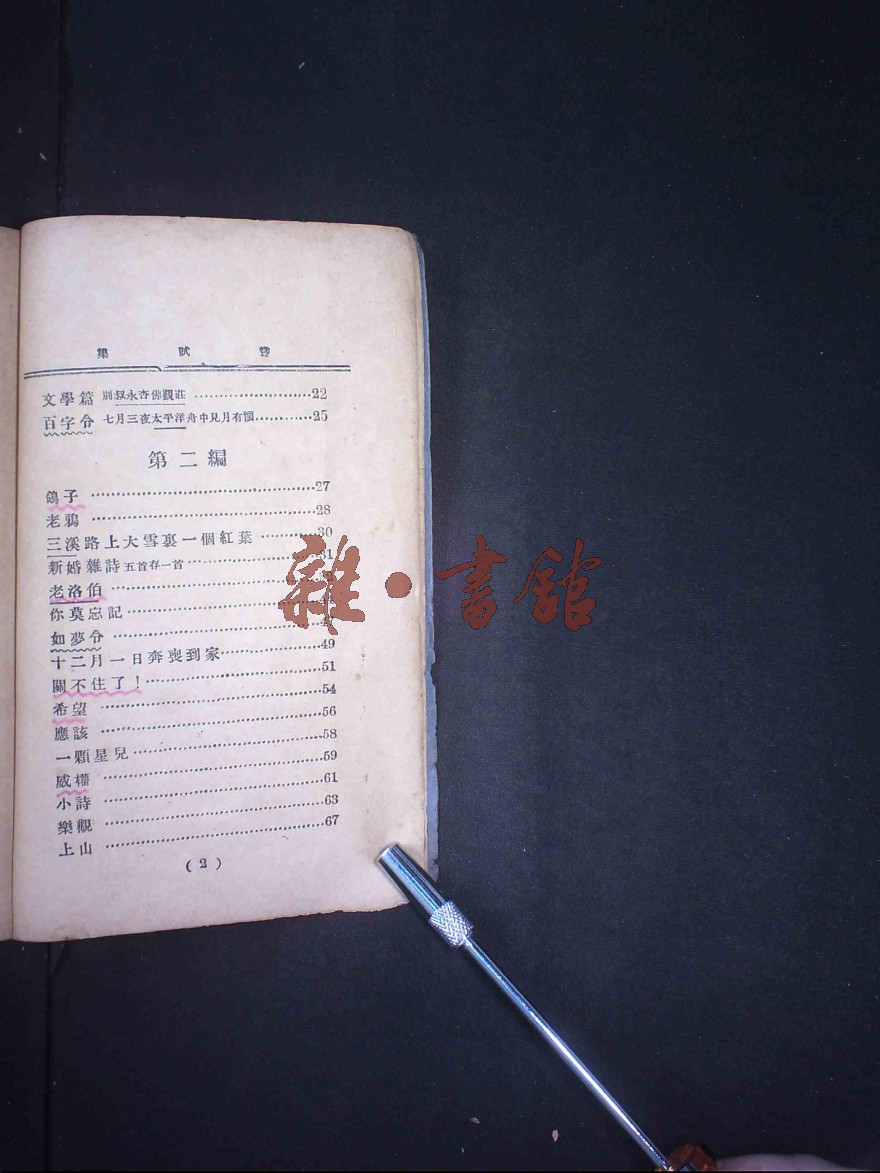 嘗試集
文學篇 別叔永杏佛覲莊 ……………………22
百字令 七月三夜太平洋舟中見月有懷…………25
第二編
鴿子 ……………………………………27
老鴉 ……………………………………28
三溪路上大雪裏一個紅葉 …………30
新婚雜詩 五首存一首 ……………………31
老洛伯 ……………………………………
你莫忘記 …………………………………
如夢令 ……………………………………
十二月一日奔喪到家 …………………49
關不住了！ ………………………………51
希望 ……………………………………54
應該 ……………………………………56
一顆星兒 …………………………………58
威權 ……………………………………59
小詩 ……………………………………61
樂觀 ……………………………………63
上山 ……………………………………67
(2)
雜·書館